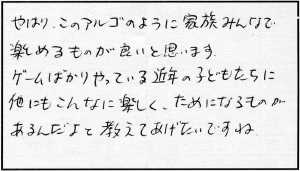 やはり、このアルゴのように家族みんなで
楽しめるものが良いと思います。
ゲームばかりやっている近年の子どもたちに
他にもこんなに楽しく、ためになるものが
あるんだよと教えてあげたいですね。